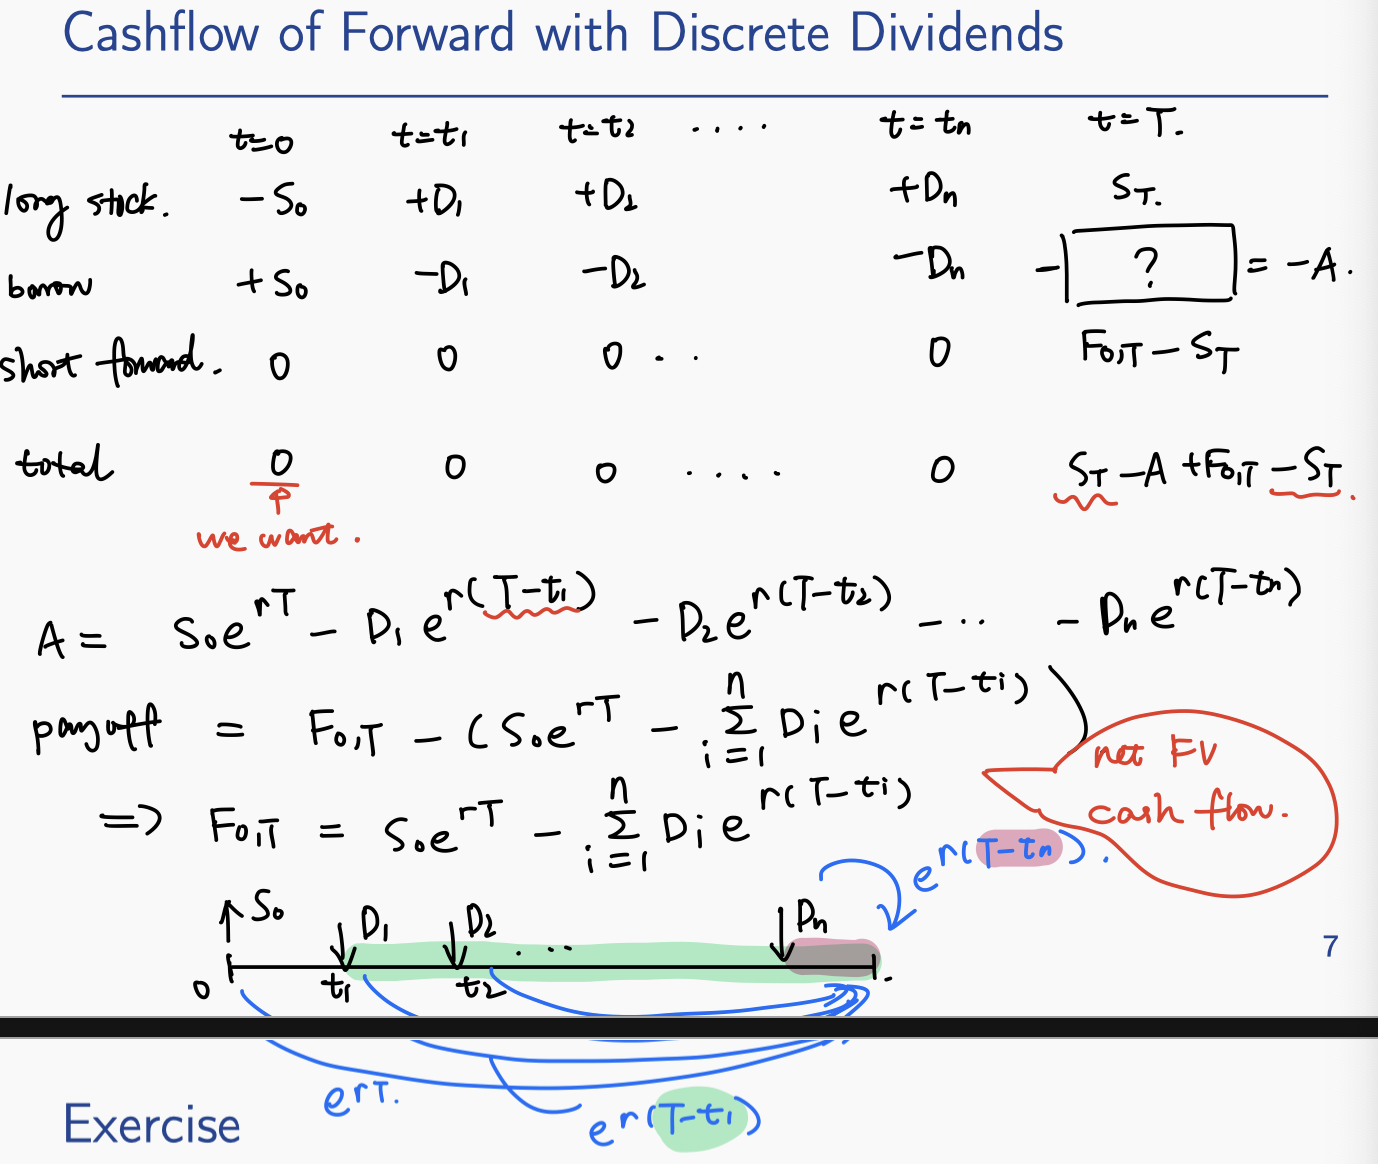 Cashflow of Forward with Discrete Dividends
t=0 t=t₁ t=t₂ ···· t=tₙ t=T.
long stock. -S₀ +D₁ +D₂ +Dₙ S_T.
borrow +S₀ -D₁ -D₂ -Dₙ -[ ? ] = -A.
short forward. 0 0 0 ··· 0 F₀,T - S_T
total 0 0 0 ···· 0 S_T - A + F₀,T - S_T.
we want.
A = S₀e^{rT} - D₁e^{r(T-t₁)} - D₂e^{r(T-t₂)} - ··· - Dₙe^{r(T-tₙ)}
payoff = F₀,T - (S₀e^{rT} - Σ_{i=1}^{n} Dᵢe^{r(T-tᵢ)})
net FV
cash flow.
=> F₀,T = S₀e^{rT} - Σ_{i=1}^{n} Dᵢe^{r(T-tᵢ)}
e^{r(T-tₙ)}.
S₀ D₁ D₂ ··· Dₙ
7
0 t₁ t₂
e^{rT}.
e^{r(T-t₁)}
Exercise